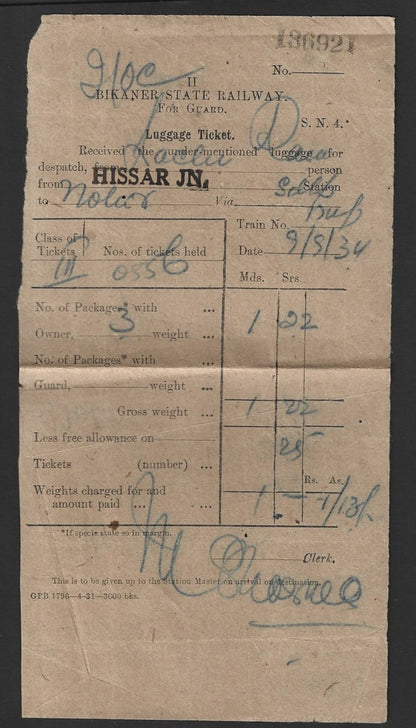 136921
No.
II
BIKANER STATE RAILWAY.
FOR GUARD.
S. N. 4.
Luggage Ticket.
Received the under-mentioned luggage for
despatch, from person
from HISSAR JN. Station
to Via
Train No.
Class of
Tickets III
Nos. of tickets held 0556
Date 9/9/34
Mds. Srs.
No. of Packages* with ...
Owner, 3 weight ... 1 22
No. of Packages* with
Guard, weight ...
Gross weight ... 1 22
Less free allowance on 25
Tickets (number) ...
Rs. As.
Weights charged for and
amount paid ... ... 1 - 1/13/-
*If specie state so in margin.
Clerk.
This is to be given up to the Station Master on arrival at destination.
GPB 1796—4-31—3000 bks.